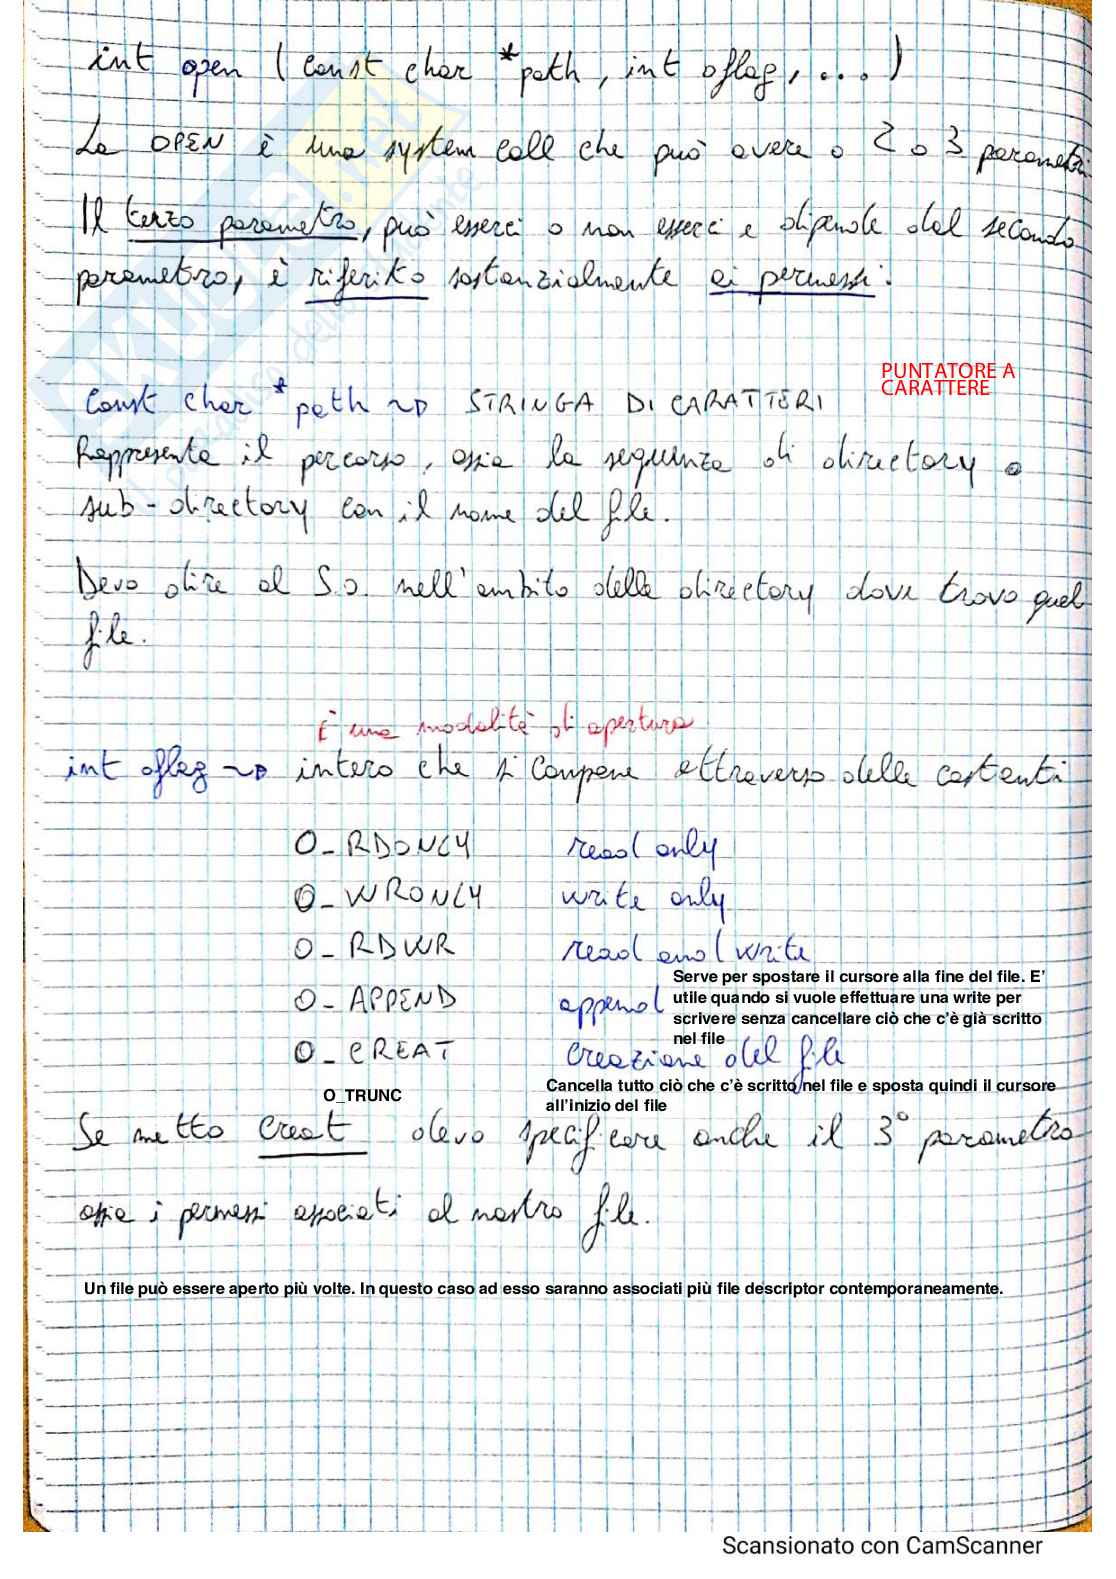 int open (const char *path, int oflag, ...)
La OPEN è una system call che può avere o 2 o 3 parametri
Il terzo parametro, può esserci o non esserci e dipende dal secondo
parametro, è riferito sostanzialmente ai permessi.
PUNTATORE A
CARATTERE
Const char *path ~> STRINGA DI CARATTERI
Rappresenta il percorso, ossia la sequenza di directory o
sub-directory con il nome del file.
Devo dire al S.O. nell'ambito della directory dove trovo quel
file.
È una modalità di apertura
int oflag ~> intero che si compone attraverso delle costanti
O_RDONLY read only
O_WRONLY write only
O_RDWR read and write
O_APPEND append
Serve per spostare il cursore alla fine del file. E'
utile quando si vuole effettuare una write per
scrivere senza cancellare ciò che c'è già scritto
nel file
O_CREAT creazione del file
O_TRUNC Cancella tutto ciò che c'è scritto nel file e sposta quindi il cursore
all'inizio del file
Se metto Creat devo specificare anche il 3° parametro
ossia i permessi associati al nostro file.
Un file può essere aperto più volte. In questo caso ad esso saranno associati più file descriptor contemporaneamente.
Scansionato con CamScanner